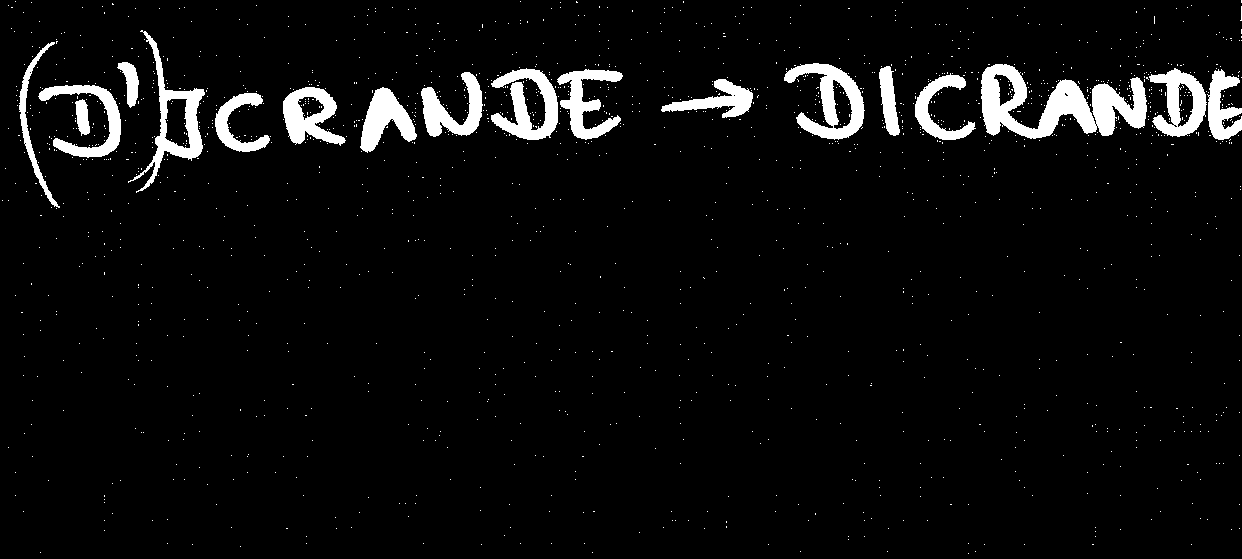 (D')ICRANDE → DICRANDE